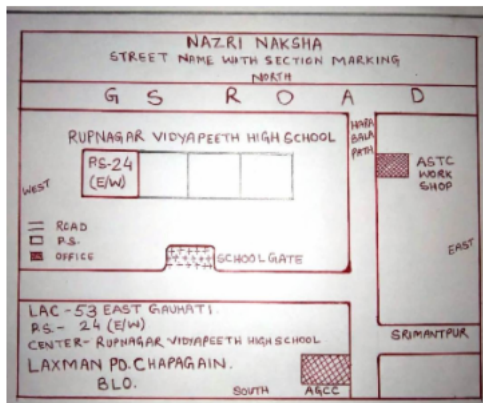 NAZRI NAKSHA
STREET NAME WITH SECTION MARKING
NORTH
G S ROAD
RUPNAGAR VIDYAPEETH HIGH SCHOOL
HARA
BALA
PATH
P.S-24
(E/W)
ASTC
WORK
SHOP
WEST
EAST
ROAD
P.S.
OFFICE
SCHOOL GATE
LAC - 53 EAST GAUHATI
P.S. - 24 (E/W)
CENTER - RUPNAGAR VIDYAPEETH HIGH SCHOOL
LAXMAN PD. CHAPAGAIN.
BLO.
SRIMANTPUR
SOUTH
AGCC